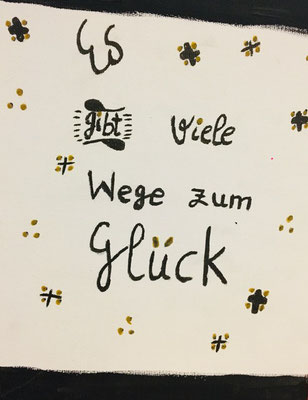 Es
gibt Viele
Wege zum
Glück